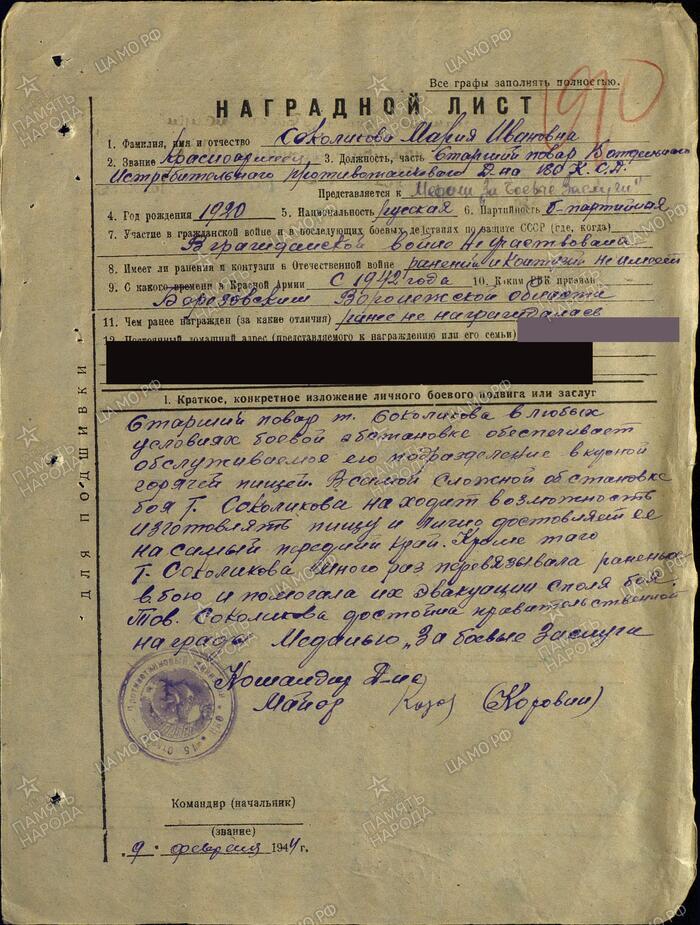 Все графы заполнять полностью.
910
НАГРАДНОЙ ЛИСТ
1. Фамилия, имя и отчество Соколикова Мария Ивановна
2. Звание Красноармеец 3. Должность, часть Старший повар Отдельного
Истребительного противотанкового Д-на 180 К.С.Д.
Представляется к Медали "За боевые заслуги"
4. Год рождения 1920 5. Национальность русская 6. Партийность б-партийная
7. Участие в гражданской войне и в последующих боевых действиях по защите СССР (где, когда)
В гражданской войне не участвовала
8. Имеет ли ранения и контузии в Отечественной войне ранений и контузий не имеет
9. С какого времени в Красной Армии с 1942 года 10. Каким РВК призван
Воронежской области
11. Чем ранее награжден (за какие отличия) ранее не награждалась
12. Постоянный домашний адрес (представляемого к награждению или его семьи)
I. Краткое, конкретное изложение личного боевого подвига или заслуг
Старший повар т. Соколикова в любых
условиях боевой обстановке обеспечивает
обслуживаемое ею подразделение вкусной
горячей пищей. В самой сложной обстановке
боя т. Соколикова находит возможность
изготовлять пищу и лично достовляет ее
на самый передний край. Кроме таго
т. Соколикова много раз перевязывала раненых
в бою и помогала их эвакуации с поля боя.
Тов. Соколикова достойна правительственной
награды Медалью „За боевые Заслуги
Командир Д-на
Майор (Коровин)
Командир (начальник)
(звание)
9. февраля 1944 г.
ДЛЯ ПОДШИВКИ
ПАМЯТЬ НАРОДА
ЦАМО РФ